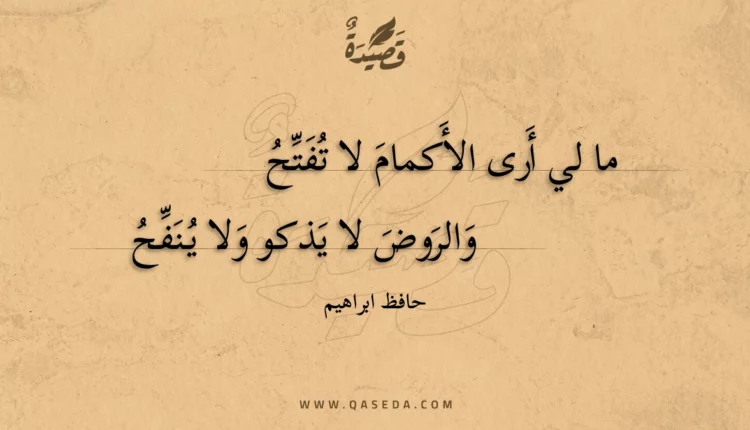 قَصِيدَةٌ
ما لي أَرى الأَكمامَ لا تُفَتِّحُ
وَالرَوضَ لا يَذكو وَلا يُنَفِّحُ
حافظ ابراهيم
WWW.QASEDA.COM